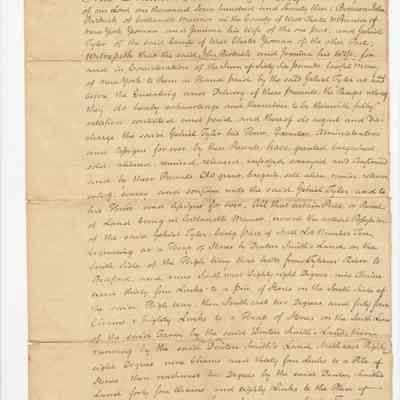 of our Lord one thousand seven hundred and seventy
of Cortlandt Manor in the County of West Chester & Province of
New York Yeoman and Jemima his Wife of the one part, and Gabriel
Tyler of the said County of West Chester Yeoman of the other Part;
Witnesseth that the said John and Jemima his Wife, for
and in Consideration of the Sum of Sixty Six pounds Lawful Money
of New York to them in Hand paid by the said Gabriel Tyler at and
before the Ensealing and Delivery of these Presents, the Receipt whereof
they do hereby acknowledge and themselves to be therewith fully
satisfied contented and paid, and thereof do acquit and Dis-
charge the said Gabriel Tyler his Heirs, Executors, Administrators
and Assigns for ever by these Presents, have granted, bargained
sold, aliened, remised, released, enfeoffed, conveyed and Confirmed
and by these Presents Do grant, bargain, sell, alien, remise, release
convey and confirm unto the said Gabriel Tyler, and to
his Heirs and Assigns for ever, All that certain Piece or Parcel
of Land lying in Cortlandts Manor, now in the actual Possession
of the said Gabriel Tyler being part of North Lot Number Ten,
beginning at a Heap of Stones by Denton Smith's Land, on the
South Side of the High Way that leads from River to
Bedford, and runs South East Eighty eight Degrees nine Chains
and thirty four Links to a Pile of Stones on the South Side of
the said High Way, then South East two Degrees and forty four
Chains & Eighty Links to a Heap of Stones on the South Line
of the said Farm by the said Denton Smith's Land, thence
running by the said Denton Smith's Land, North West Eighty
eight Degrees nine Chains and thirty four Links to a Pile of
Stones, then northwest two Degrees by the said Denton Smith's
Land, forty four Chains and eighty Links to the Place of